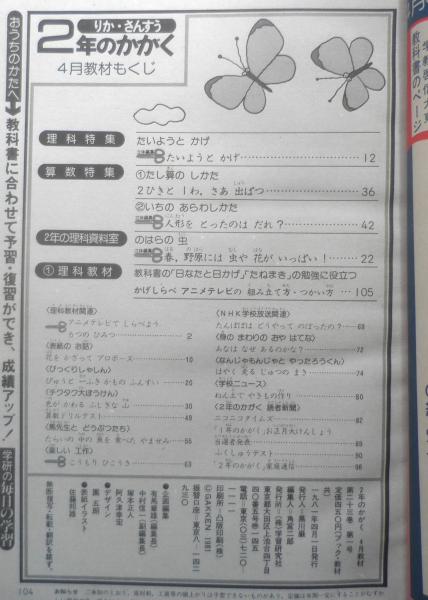 りか・さんすう
2年のかがく
4月教材もくじ
理科特集
たいようと かげ
たいようと かげ…12
算数特集
①たし算の しかた
2ひきと 1わ、さあ 出ぱつ…36
②いちの あらわしかた
人形を とったのは だれ?…42
2年の理科資料室
のはらの 虫
春、野原には 虫や 花が いっぱい!…22
①理科教材
教科書の「日なたと日かげ」「たねまき」の勉強に役立つ
かげしらべ アニメテレビの 組み立て方・つかい方…105
〈理科教材関連〉
アニメテレビで しらべよう
もつの ひみつ 2
〈表紙の お話〉
花を かざって アロポース 10
〈びっくりしゃしん〉
びゅうど 一ふき かもの ふんすい 20
〈チクタクぼうけん〉
色が かわる ふしぎな 山 30
算数ドリルテスト 49
〈馬先生と どうぶつたち〉
たらいの 中の 魚を 食べた やませみ 55
〈楽しい 工作〉
こうもり ひこうき 63
〈NHK学校放送関連〉
たんぽぽは どうやって のぼったの? 68
〈身の まわりの おや はてな〉
あなは なぜ あるのかな? 72
〈なんじゃもんじゃと やったろうくん〉
はやく 走る じゅつの まき 74
〈学校ニュース〉
ねん土で やきもの作り 80
〈2年のかがく 読者新聞〉
ニコニコタイムズ 82
「1年のかがく」お正月大けんしょう
当選者発表 89
ふくしゅうテスト 90
「2年のかがく」家庭通信 96
おうちのかたへ
教科書に合わせて予習・復習ができ、成績アップ!
学研の毎日の学習
2年のかがく 4月教材
第二十三巻 第一号
定価四五〇円(ブック・教材共)
一九八一年四月一日発行
発行人●黒川巌
編集人●角喜二郎
発行所●(株)学習研究社
東京都大田区上池台四丁目四〇番五号 〒一四五
電話=東京(〇三)七二〇-
振替口座=東京八-一四二九三〇
印刷所 凸版印刷(株)
©GAKKEN 1981
●企画編集
有馬朗雄(編集長)
中村信一(副編集長)
塚本正人
阿久津幸宏
●デザイン
園五朗
●表紙イラスト
佐藤邦雄
無断複写・転載・翻訳を禁ず。
104
教科書のページ